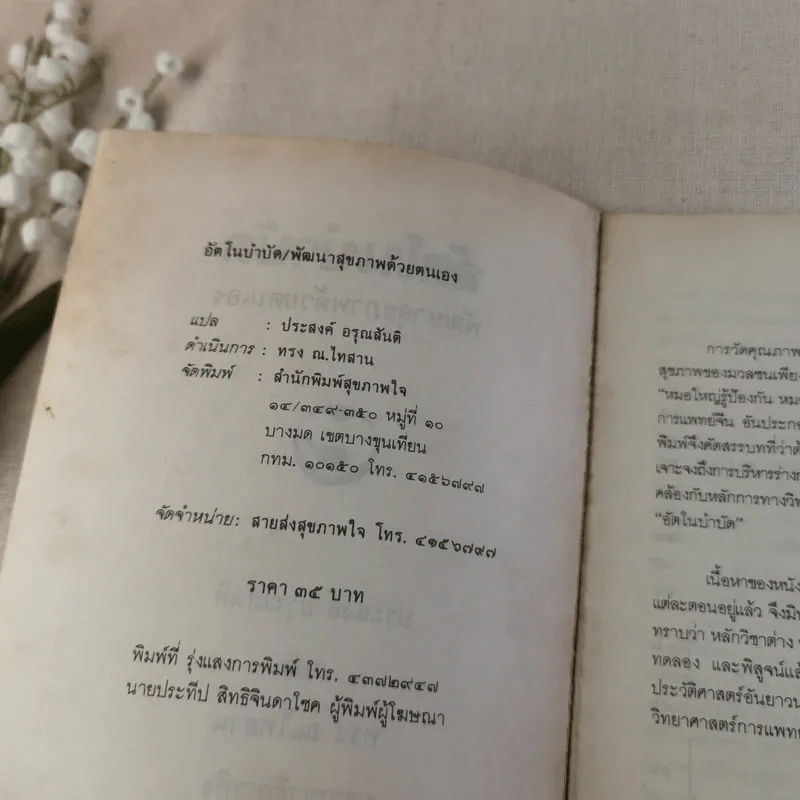 อัตโนบำบัด/พัฒนาสุขภาพด้วยตนเอง
แปล : ประสงค์ อรุณสันติ
ดำเนินการ : ทรง ณ.ไทสาน
จัดพิมพ์ : สำนักพิมพ์สุขภาพใจ
๑๔/๓๔๙-๓๕๐ หมู่ที่ ๑๐
บางมด เขตบางขุนเทียน
กทม. ๑๐๑๕๐ โทร. ๔๑๕๖๗๙๗
จัดจำหน่าย: สายส่งสุขภาพใจ โทร. ๔๑๕๖๗๙๗
ราคา ๓๕ บาท
พิมพ์ที่ รุ่งแสงการพิมพ์ โทร. ๔๓๗๒๙๔๗
นายประทีป สิทธิจินดาโชค ผู้พิมพ์ผู้โฆษณา
การวัดคุณภาพ
สุขภาพของมวลชนเพียง
"หมอใหญ่รู้ป้องกัน หม
การแพทย์จีน อันประกอ
พิมพ์จึงคัดสรรบทที่ว่าด้
เจาะจงถึงการบริหารร่างก
คล้องกับหลักการทางวิท
"อัตโนบำบัด"
เนื้อหาของหนัง
แต่ละตอนอยู่แล้ว จึงมิน
ทราบว่า หลักวิชาต่าง
ทดลอง และพิสูจน์แล้
ประวัติศาสตร์อันยาวน
วิทยาศาสตร์การแพทย์